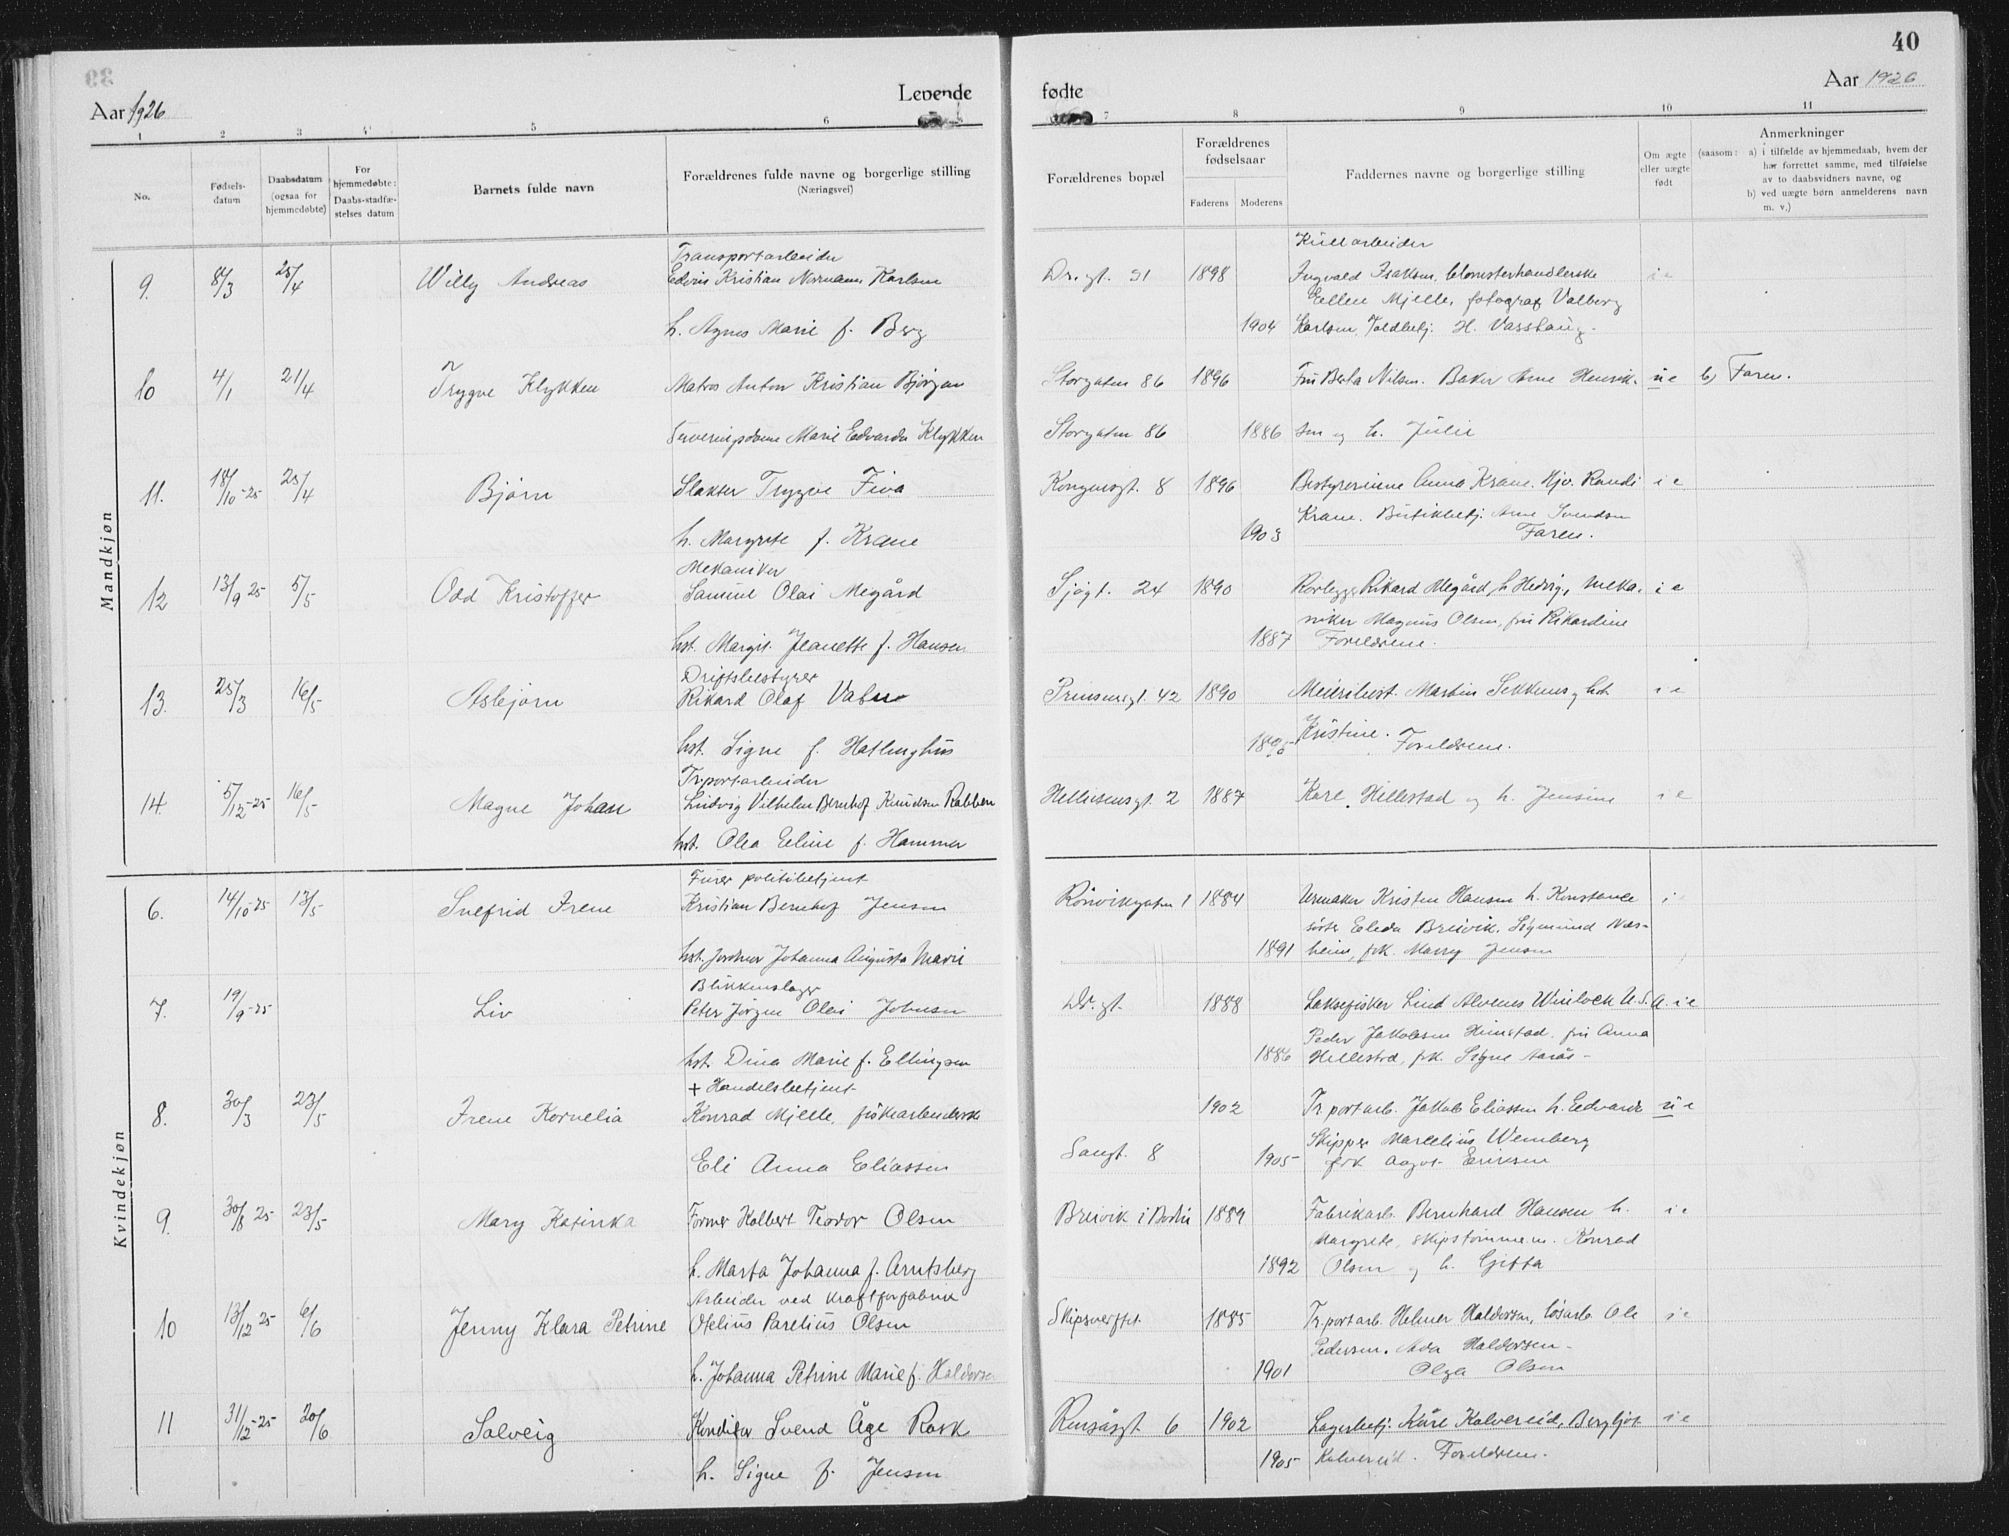 40
Aar 1926
Levende
fødte
Aar 1926
1 2 3 4 5 6 7 8 9 10 11
No.
Fødsels-
datum
Daabsdatum
(ogsaa for
hjemmedøbte)
For
hjemmedøbte:
Daabs-stadfæ-
stelses datum
Barnets fulde navn
Forældrenes fulde navne og borgerlige stilling
(Næringsvei)
Forældrenes bopæl
Forældrenes
fødselsaar
Faderens Moderens
Faddernes navne og borgerlige stilling
Om ægte
eller uægte
født
Anmerkninger
(saasom: a) i tilfælde av hjemmedaab, hvem der
har forrettet samme, med tilføielse
av to daabsvidners navne, og
b) ved uægte børn anmelderens navn
m. v.)
Mandkjøn
Transportarbeider Kullarbeider
9. 8/3 25/4 Willy Andreas Edvin Kristian Normann Karlsen Dr.gt. 31 1898 Ingvald Isaksen, blomsterhandlerske i e
Ellen Mjelle, fotograf Valborg
h. Agnes Marie f. Berg 1904 Karlsen, Toldbetj. H. Vasshaug.
10 4/1 21/4 Trygve Klykken Matros Anton Kristian Bjørgan Storgaten 86 1896 Fru Berta Nilsen. Baker Arne Henrik- u e b) Faren.
Serveringsdame Marie Edvarda Klykken Storgaten 86 1886 sen og h. Julie
11. 18/10-25 25/4 Bjørn Slakter Trygve Fiva Kongensgt. 8 1896 Bestyrerinne Anna Krane. Hjv. Randi i e
Krane. Butikkbetj. Arne Svendsen
h. Margrete f. Krane 1903 Faren.
Mekaniker
12 13/9 25 5/5 Odd Kristoffer Samuel Olai Megård Sjøgt. 24 1890 Rørlegger Rikard Megård, h. Hedvig, meka- i e
niker Magnus Olsen, fru Rikardine
hst. Margit Jeanette f. Hansen 1887 Foreldrene.
Driftsbestyrer
13. 25/3 16/5 Asbjørn Rikard Olaf Prinsensgt. 42 1890 Meieribest. Martin Sekkenes og hst. i e
Kristine.
hst. Signe f. Hatlinghus Foreldrene.
Tr.portarbeider
14. 5/12-25 16/5 Magne Johan Ludvig Vilhelm Bernhof Knudsen Rabben Hellesensgt. 2 1887 Karl Hillestad og h. Jensine i e
hst. Olea Eline f. Hammer
Kvindekjøn
politibetjent
6. 14/10-25 13/5 Snefrid Irene Kristian Bernhof Jensen Rønvikgaten 1 1884 Urmaker Kristen Hansen h. Konstance i
søster Eleda Breivik. Sigmund Næs-
hst. Johanna Augusta Marie 1891 heim, frk. Marry Jensen
Blikkenslager
7. 19/9-25 Liv Peter Jørgen Olai Johnsen Dr.gt. 1888 Laksefisker Lind Alvenes Winlock U.S.A. i e
Peder Jakobsen fru Anna
hst. Dina Marie f. Ellingsen 1886 Hillestad, frk. Signe
+ Handelsbetjent
8. 30/3 23/5 Irene Kornelia Konrad Mjelle, fiskearbeiderske 1902 Tr.portarb. Jakob Eliassen h. Edvarda u e
Skipper Marcelius Wennberg
Eli Anna Eliassen Sangt. 8 1905 frk Aagot Eriksen
9. 30/8 25 23/5 Mary Katinka Former Halbert Teodor Olsen Breivik i Bodin 1889 Fabrikarb. Bernhard Hansen h. i e
Margrete, skipstømmerm. Konrad
h. Marta Johanna f. Arntsberg 1892 Olsen og h. Gitta
Arbeider ved kraftforfabrik
10 13/12 25 6/6 Jenny Klara Petrine Otelius Parelius Olsen Skipsverftet 1885 Tr.portarb. Helmer Haldorsen, løsarb. Ole i e
Pedersen. Ada Haldorsen-
h. Johanna Petrine Marie f. Haldorsen 1901 Olga Olsen
11 31/12-25 20/6 Solveig Konditor Svend Åge Rask Rensåsgt 6 1902 Lagerbetj. Kåre Kalvereid, Bergljot i e
h. Signe f. Jensen 1905 Kalvereid. Foreldrene.